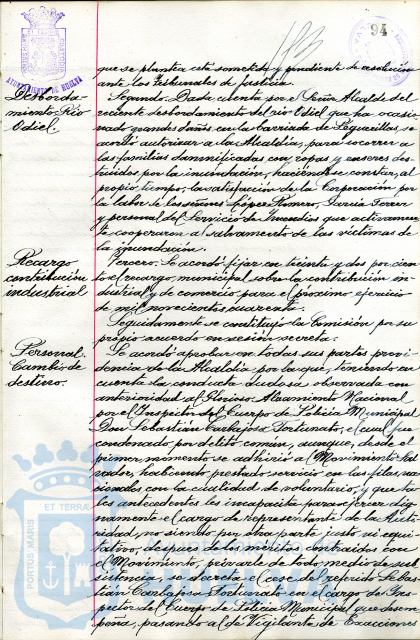 94
AYUNTAMIENTO DE HUELVA
que se plantea está sometido y pendiente de resolución
ante los Tribunales de Justicia.
Desborda-
miento Río
Odiel.
Segundo. Dada cuenta por el Señor Alcalde del
reciente desbordamiento del río Odiel que ha ocasio-
nado grandes daños en la barriada de Peguerillas, se
acordó autorizar a la Alcaldía, para socorrer a
las familias damnificadas con ropas y enseres des-
truidos por la inundación, haciéndose constar, al
propio tiempo, la satisfacción de la Corporación por
la labor de los señores López Romero, García Ferrer
y personal del Servicio de Incendios que activamen-
te cooperaron al salvamento de las víctimas de
la inundación.
Recargo
contribución
industrial
Tercero. Se acordó fijar en treinta y dos por cien-
to el recargo municipal sobre la contribución in-
dustrial y de comercio para el próximo ejercicio
de mil novecientos cuarenta.
Seguidamente se constituyó la Comisión por su
propio acuerdo en sesión secreta.
Personal.
Cambio de
destino.
Se acordó aprobar en todas sus partes provi-
dencia de la Alcaldía por la que, teniendo en
cuenta la conducta dudosa observada con
anterioridad al Glorioso Alzamiento Nacional
por el Inspector del Cuerpo de Policía Municipal
Don Sebastián Carbajosa Fortunato, el cual fue
condenado por delito común, aunque, desde el
primer momento se adhirió al Movimiento Sal-
vador, habiendo prestado servicio en las filas na-
cionales con la cualidad de voluntario, y que ta-
les antecedentes les incapacita para ejercer dig-
namente el cargo de representante de la Auto-
ridad, no siendo por otra parte justo ni equi-
tativo, después de los méritos contraídos con
el Movimiento, privarle de todo medio de sub-
sistencia, se decreta el cese del referido Sebas-
tián Carbajosa Fortunato en el cargo de Ins-
pector del Cuerpo de Policía Municipal que desem-
peña, pasando al de Vigilante de Exacciones
PORTUS MARIS
ET TERRAE
Ayuntamiento de
HUELVA